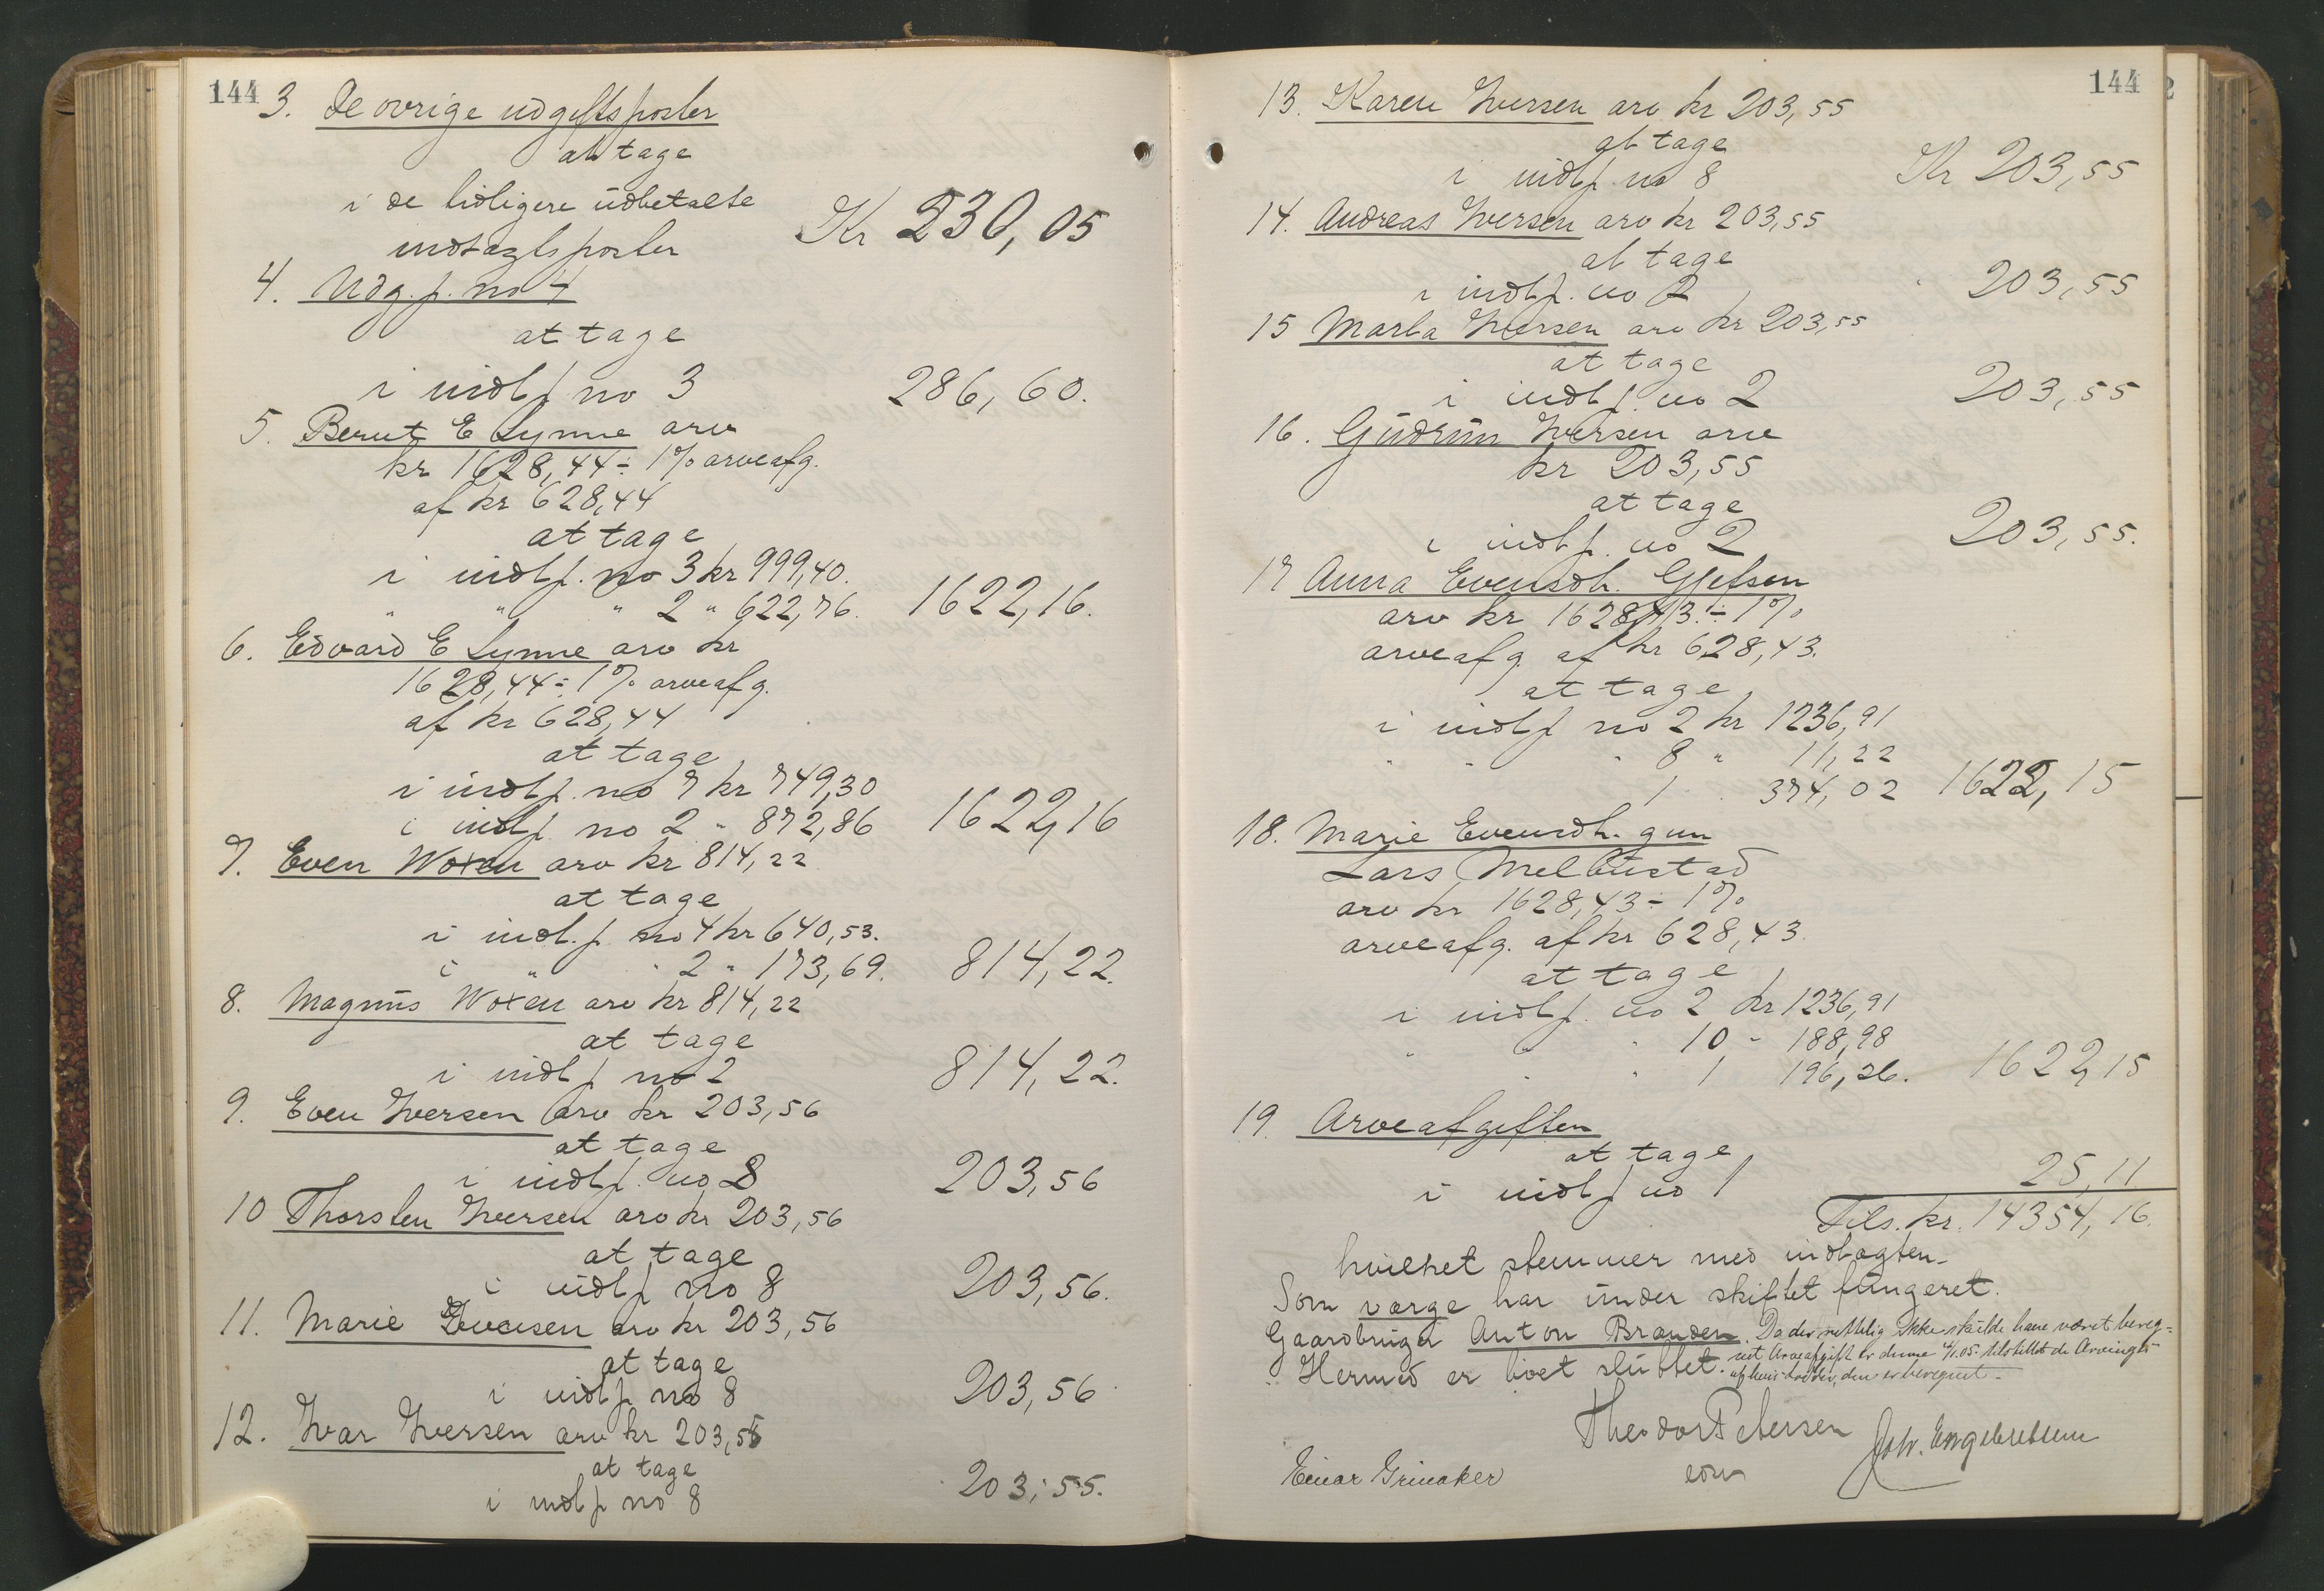 144
3. De øvrige udgiftsposter
at tage
i de tidligere udbetalte
indtægtsposter Kr 230,05
4. Udg. p. no 4
at tage
i indt p no 3 286,60.
5. Berut E Lynne arv
kr 1628,44 ÷ 1% arveafg.
af kr 628,44
at tage
i indt p. no 3 kr 999,40.
" " " 2 " 622,76. 1622,16.
6. Edvard E Lynne arv kr
1628,44 ÷ 1% arveafg.
af kr 628,44
at tage
i indt p. no 7 kr 749,30
i indt p no 2 " 872,86 1622,16
7. Even Woxen arv kr 814,22
at tage
i indt. p no 4 kr 640,53.
i " " 2 " 173,69. 814,22.
8. Magnus Woxen arv kr 814,22
at tage
i indt p no 2 814,22.
9. Even Iversen arv kr 203,56
at tage
i indt p. no 8 203,56
10 Thorsten Iversen arv kr 203,56
at tage
i indt p no 8 203,56.
11. Marie Iversen arv kr 203,56
at tage
i indt p no 8 203,56
12. Ivar Iversen arv kr 203,55
at tage
i indt p no 8 203,55.
144
13. Karen Iversen arv kr 203,55
at tage
i indt p. no 8 Kr 203,55
14. Andreas Iversen arv kr 203,55
at tage
i indt p. no 2 " 203,55
15 Marta Iversen arv kr 203,55
at tage
i indt p. no 2 203,55
16. Gudrun Iversen arv
kr 203,55
at tage
i indt p. no 2 203,55.
17 Anna Evensdt. Gjefsen
arv kr 1628,43 ÷ 1%
arveafg. af kr 628,43.
at tage
i indt p no 2 kr 1236,91
" " " 8 " 11,22
1 374,02 1622,15
18. Marie Evensdt. gm
Lars Melbustad
arv kr 1628,43 ÷ 1%
arveafg. af kr 628,43
at tage
i indt p. no 2 kr 1236,91
" " " 10 - 188,98
" " 1 196,26. 1622,15
19. Arveafgiften
at tage
i indt p no 1 25,11
Tils. kr. 14354,16.
hvilket stemmer med indtægten.
Som værge har under skiftet fungeret.
Gaardbruger Anton Branden. Da der rettelig ikke skulde have været bereg=
net Arveafgift er denne 4/1.05. tilstillet de Arvinger
Hermed er boet sluttet. af hvis lodder, den er beregnet.
Theodor Petersen
Joh. Engebretsen
Einar Grinaker